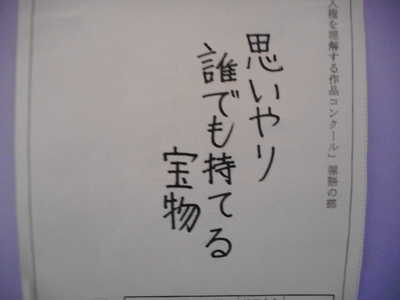 人権を理解する作品コンクール」標語の部
思いやり
誰でも持てる
宝物